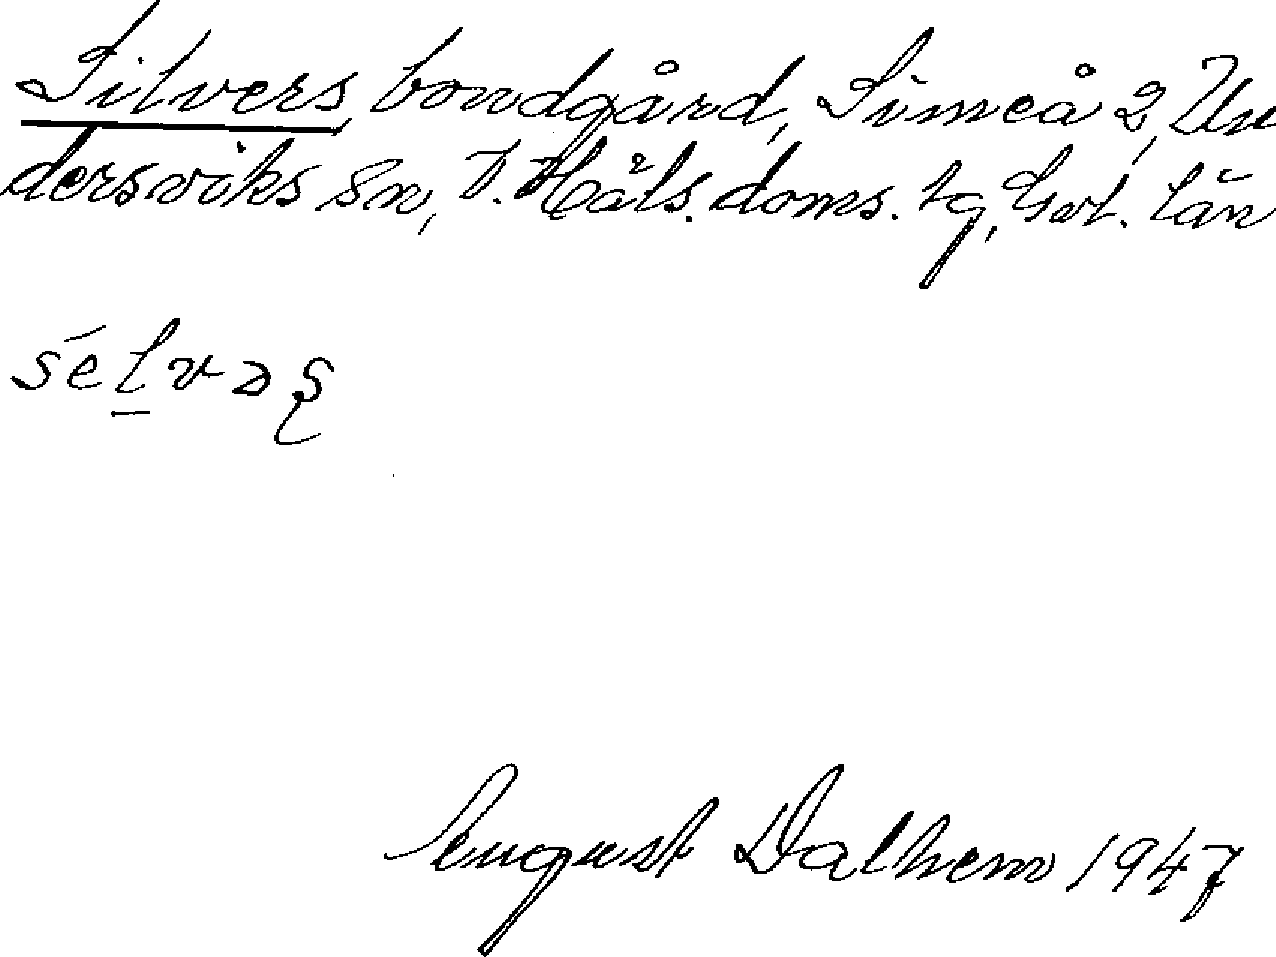 Silvers bondgård, Simeå 2, Un
dersviks sn, V. Häls. doms. tg, Gvl. län
sélvəş
August Dalhem 1947